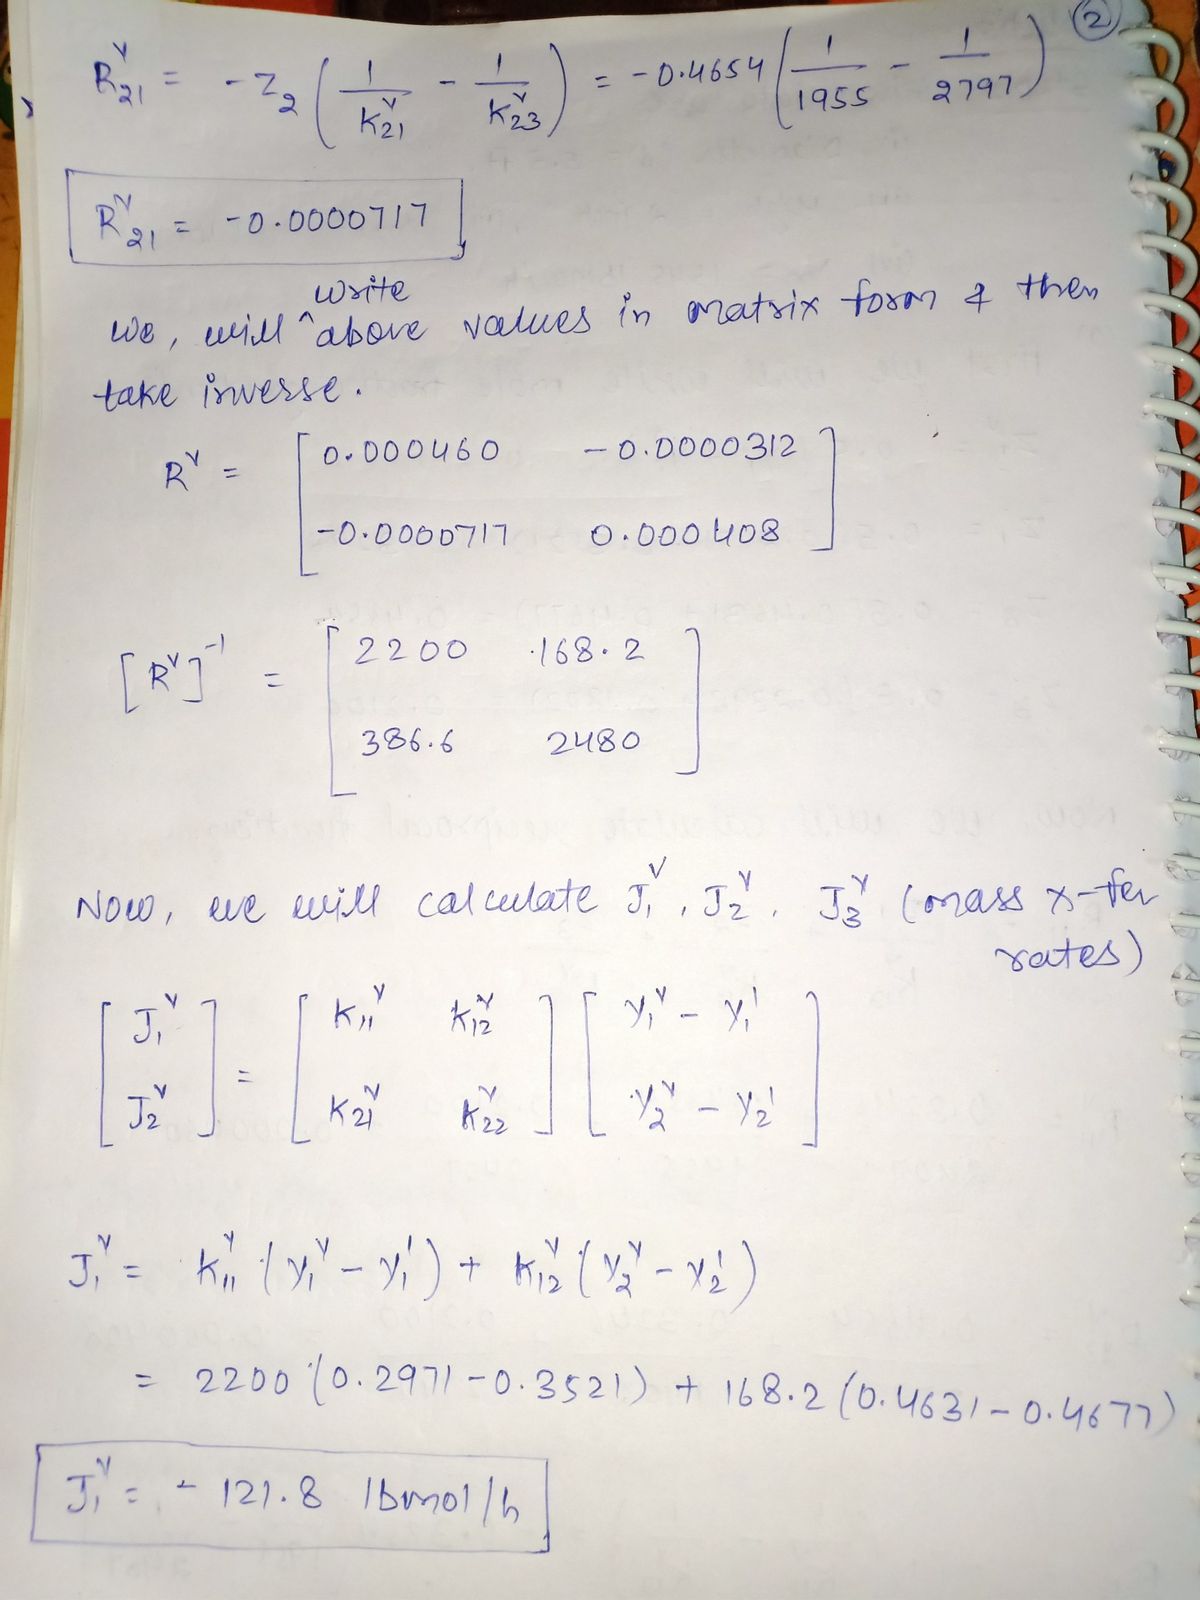 ②
R₂₁ⱽ = -Z₂ (1/K₂₁ⱽ - 1/K₂₃ⱽ) = -0.4654 (1/1955 - 1/2797)
R₂₁ⱽ = -0.0000717
write
we, will ^ above values in matrix form & then
take inverse.
Rⱽ = [0.000460 -0.0000312
-0.0000717 0.000408]
[Rⱽ]⁻¹ = [2200 168.2
386.6 2480]
Now, we will calculate J₁ⱽ, J₂ⱽ, J₃ⱽ (mass x-fer
rates)
[J₁ⱽ J₂ⱽ] = [K₁₁ⱽ K₁₂ⱽ K₂₁ⱽ K₂₂ⱽ] [y₁ⱽ - y₁ᴵ y₂ⱽ - y₂ᴵ]
J₁ⱽ = K₁₁ⱽ (y₁ⱽ - y₁ᴵ) + K₁₂ⱽ (y₂ⱽ - y₂ᴵ)
= 2200 (0.2971 - 0.3521) + 168.2 (0.4631 - 0.4677)
J₁ⱽ = - 121.8 lbmol/h